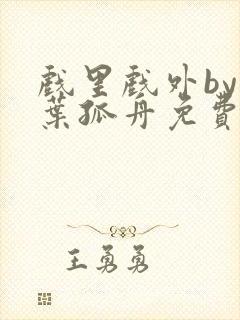 戏里戏外by
葉孤舟免費
王勇勇